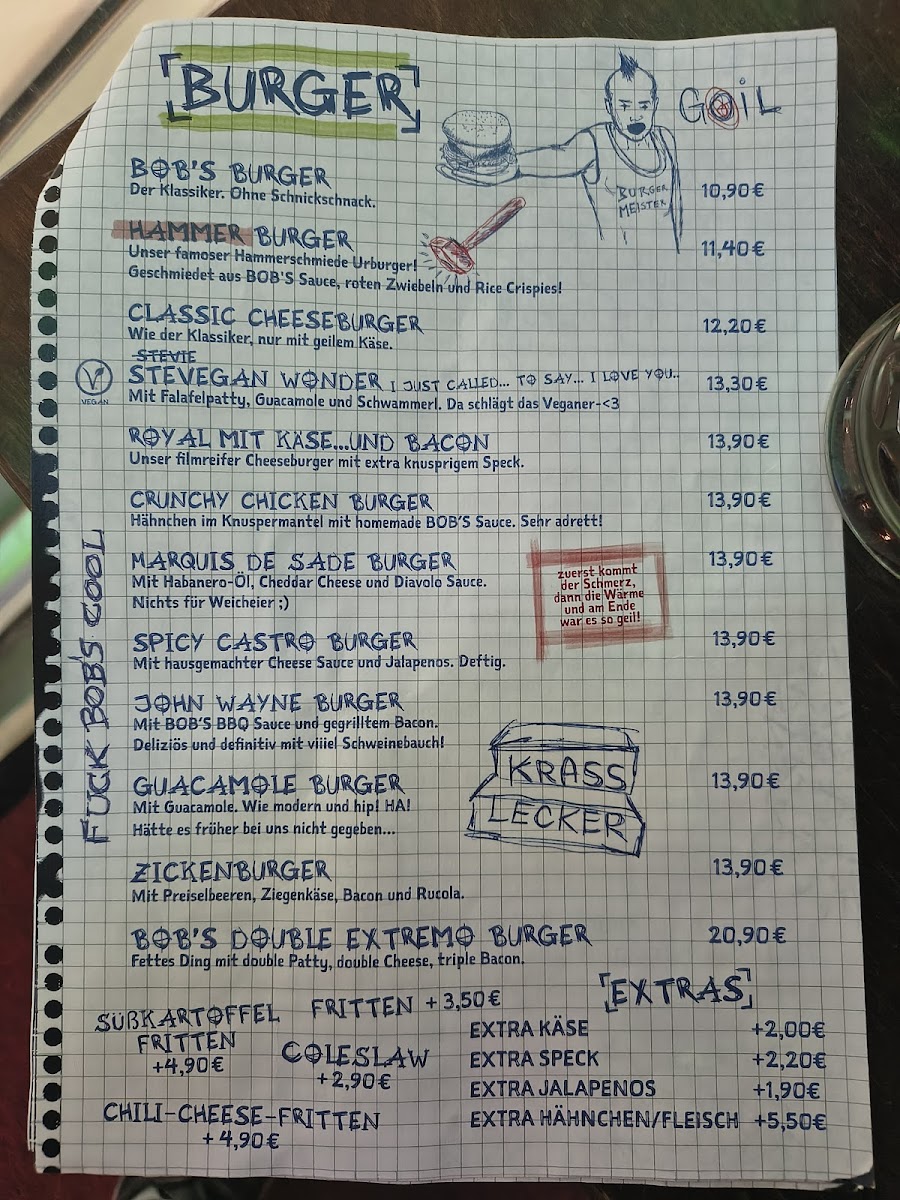 BURGER
GOIL
BURGER
MEISTER
BOB'S BURGER
Der Klassiker. Ohne Schnickschnack.
10,90€
HAMMER BURGER
Unser famoser Hammerschmiede Urburger!
Geschmiedet aus BOB'S Sauce, roten Zwiebeln und Rice Crispies!
11,40€
CLASSIC CHEESEBURGER
Wie der Klassiker, nur mit geilem Käse.
12,20€
STEVIE
STEVEGAN WONDER I JUST CALLED... TO SAY... I LOVE YOU..
Mit Falafelpatty, Guacamole und Schwammerl. Da schlägt das Veganer-<3
13,30€
V
VEGAN
ROYAL MIT KÄSE...UND BACON
Unser filmreifer Cheeseburger mit extra knusprigem Speck.
13,90€
CRUNCHY CHICKEN BURGER
Hähnchen im Knuspermantel mit homemade BOB'S Sauce. Sehr adrett!
13,90€
MARQUIS DE SADE BURGER
Mit Habanero-Öl, Cheddar Cheese und Diavolo Sauce.
Nichts für Weicheier ;)
13,90€
zuerst kommt
der Schmerz,
dann die Wärme
und am Ende
war es so geil!
SPICY CASTRO BURGER
Mit hausgemachter Cheese Sauce und Jalapenos. Deftig.
13,90€
JOHN WAYNE BURGER
Mit BOB'S BBQ Sauce und gegrilltem Bacon.
Deliziös und definitiv mit viiiel Schweinebauch!
13,90€
KRASS
LECKER
GUACAMOLE BURGER
Mit Guacamole. Wie modern und hip! HA!
Hätte es früher bei uns nicht gegeben...
13,90€
FUCK BOB'S COOL
ZICKENBURGER
Mit Preiselbeeren, Ziegenkäse, Bacon und Rucola.
13,90€
BOB'S DOUBLE EXTREMO BURGER
Fettes Ding mit double Patty, double Cheese, triple Bacon.
20,90€
SÜßKARTOFFEL
FRITTEN
+4,90€
FRITTEN +3,50€
COLESLAW
+2,90€
CHILI-CHEESE-FRITTEN
+4,90€
EXTRAS
EXTRA KÄSE +2,00€
EXTRA SPECK +2,20€
EXTRA JALAPENOS +1,90€
EXTRA HÄHNCHEN/FLEISCH +5,50€